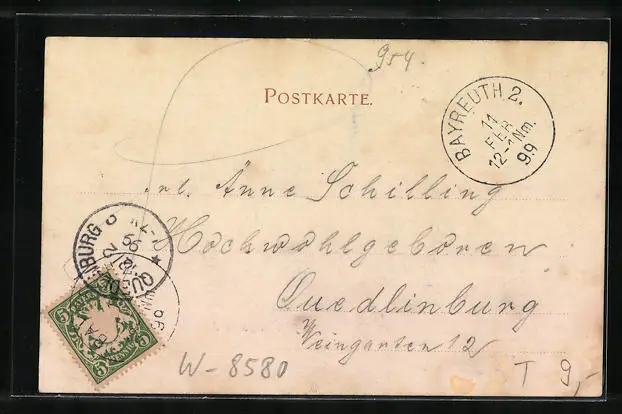 954.
POSTKARTE.
BAYREUTH 2.
11
FEB
12-1Nm.
99
Frl. Änne Schilling
Hochwohlgeboren
Quedlinburg
Weingarten 12
QUEDLINBURG
12/2
99
5
5
5
W-8580
T 9,-